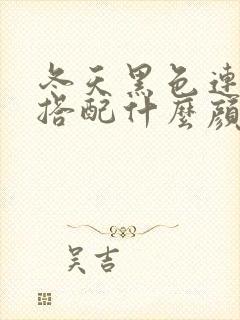 冬天黑色連
搭配什麼顔
吴吉